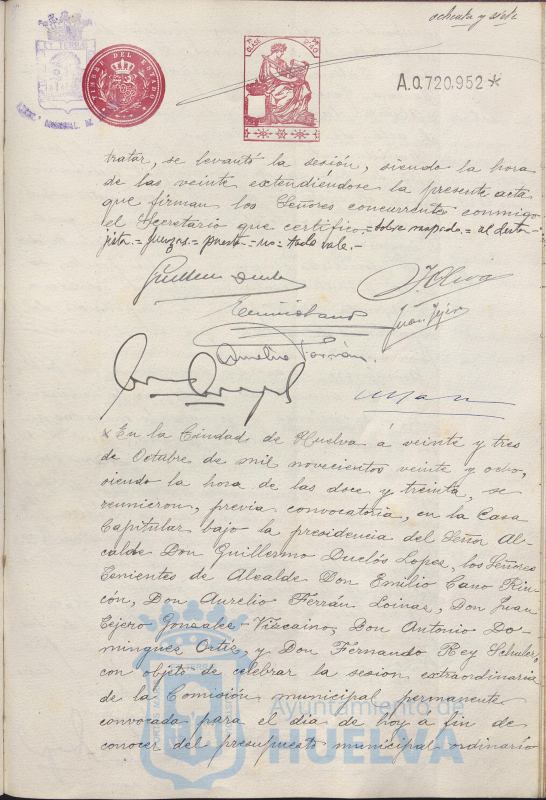 ochenta y siete
TIMBRE DEL ESTADO
CLASE
A.0.720.952*
tratar, se levantó la sesión, siendo la hora
de las veinte extendiéndose la presente acta
que firman los Señores concurrentes conmigo
el Secretario que certifico.= sobre raspado.=
= no = todo vale.-
J. Oliva
Juan Tejero
Aurelio Ferrán.
x En la Ciudad de Huelva á veinte y tres
de Octubre de mil novecientos veinte y ocho,
siendo la hora de las doce y treinta, se
reunieron, previa convocatoria, en la Casa
Capitular bajo la presidencia del Señor Al-
calde Don Guillermo Duclós Lopez, los Señores
Tenientes de Alcalde Don Emilio Cano Rin-
cón, Don Aurelio Ferrán Loinaz, Don Juan
Tejero Gonzalez-Vizcaino, Don Antonio Do-
minguez Ortiz, y Don Fernando Rey Schuler,
con objeto de celebrar la sesion extraordinaria
de la Comisión municipal permanente
convocada para el dia de hoy a fin de
conocer del presupuesto municipal ordinario
Ayuntamiento de
HUELVA